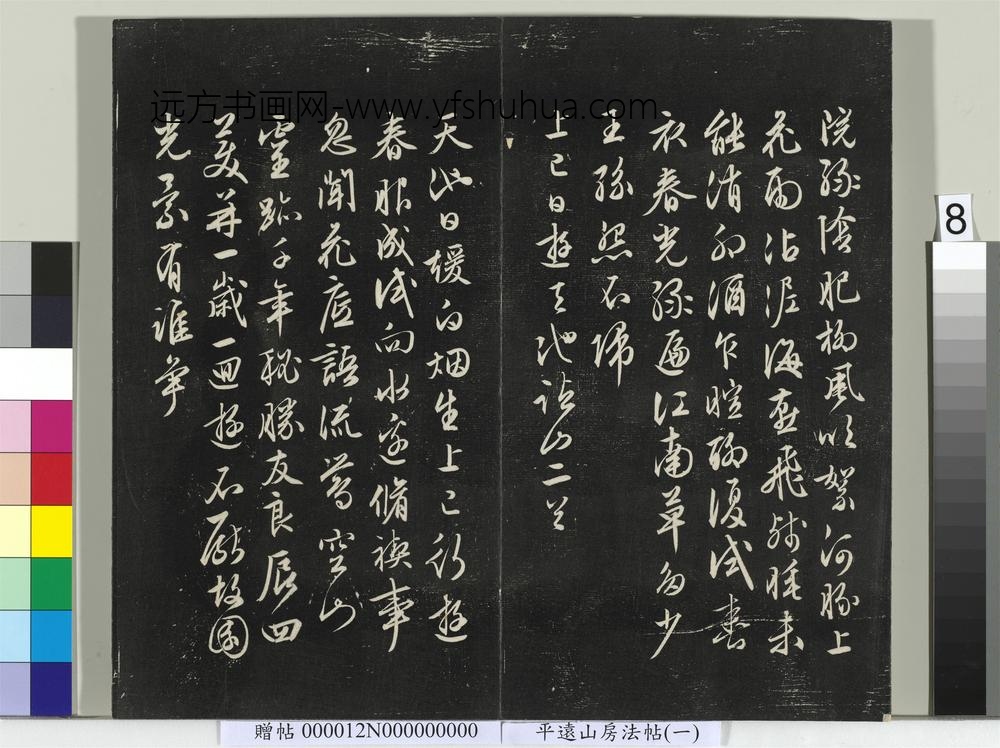 院綠陰肥楊風吹絮河豚上
花雨沾泥海燕飛殘睡未
能消卯酒乍暄聊復試春
衣春光綠遍江南草多少
王孫怨不歸
上巳日遊天池諸山二首
天池日緩白烟生上巳行遊
春服成試向水邊脩禊事
忽聞花底語流鶯空山
靈跡千年秘勝友良辰四
美并一歲一迴遊不厭故園
光景有誰爭
远方书画网-www.yfshuhua.com
8
贈帖 000012N000000000
平遠山房法帖(一)